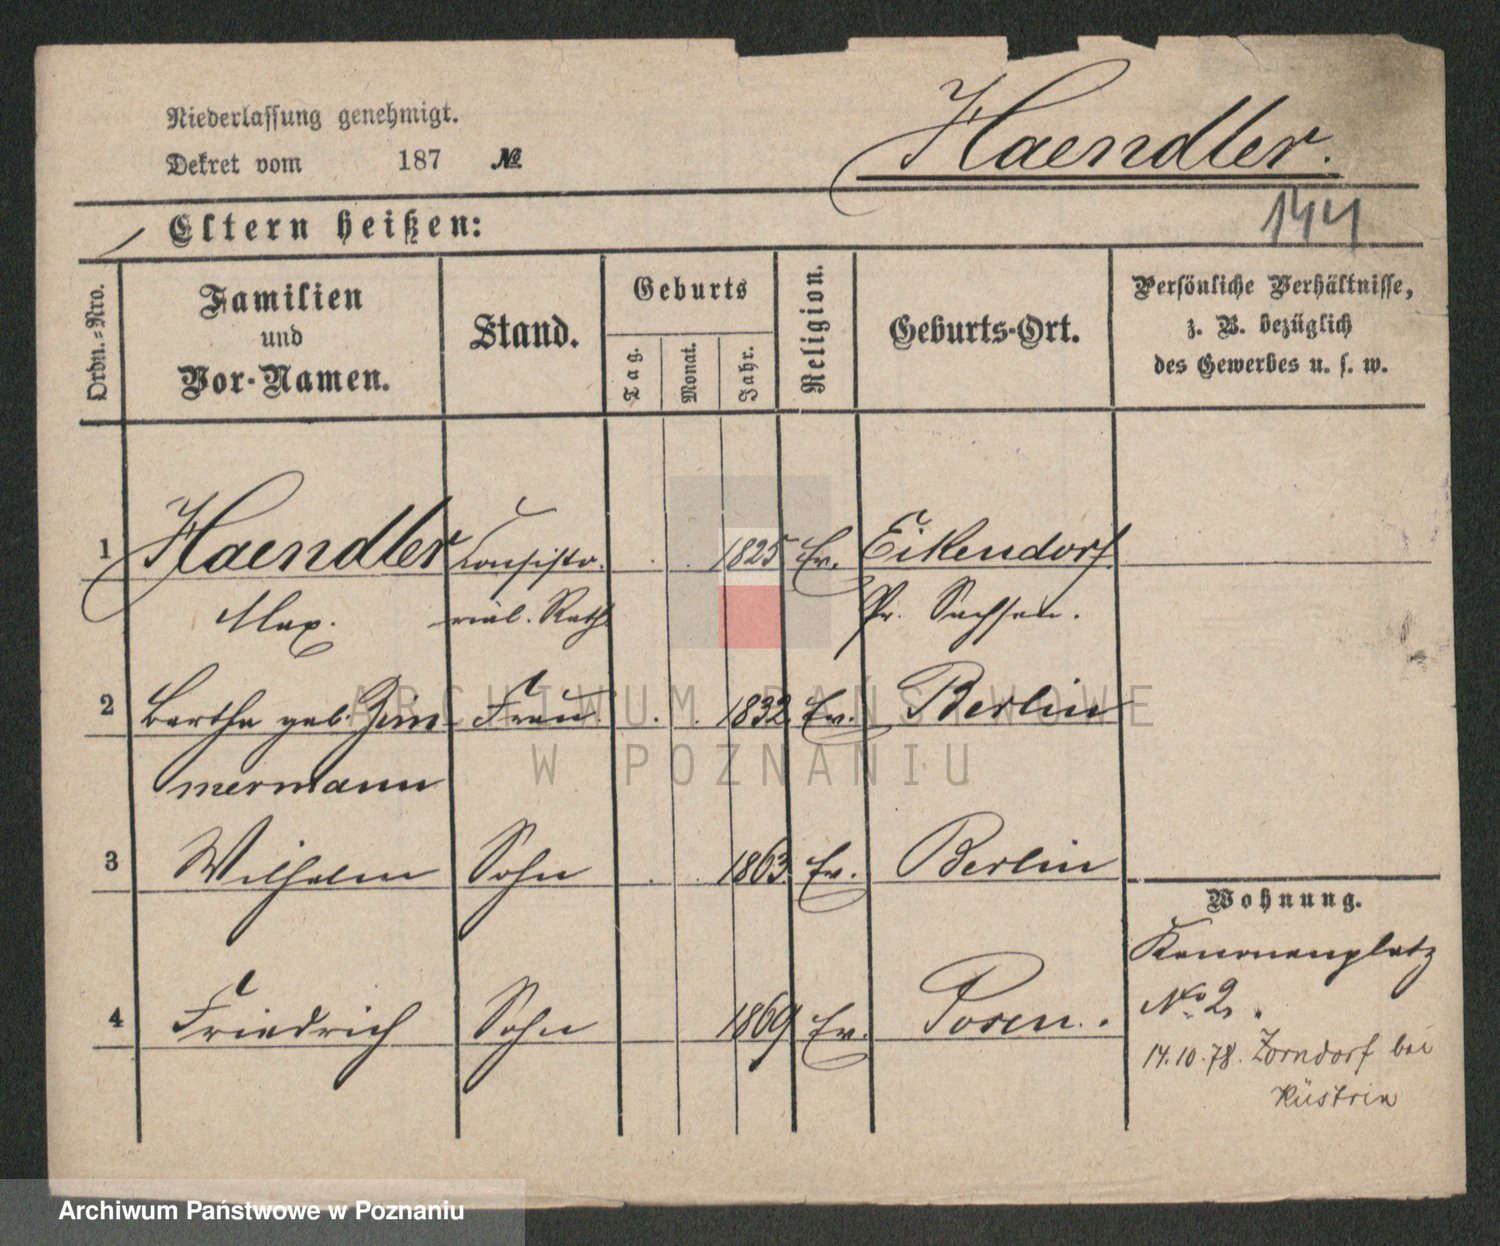 Niederlassung genehmigt.
Dekret vom 187 №
Haendler.
144
Eltern heißen:
Ordn.=Nro.
Familien
und
Vor-Namen.
Stand.
Geburts
Tag.
Monat.
Jahr.
Religion.
Geburts-Ort.
Persönliche Verhältnisse,
z. B. bezüglich
des Gewerbes u. s. w.
1 Haendler Consisto- 1825 Ev. Eikendorf
Max. rial. Rath Pr. Sachsen.
2 Bertha geb. Zim- Frau 1832 Ev. Berlin
mermann
3 Wilhelm Sohn 1863 Ev. Berlin
Wohnung.
Kanonenplatz
No 2.
4 Friedrich Sohn 1869 Ev. Posen.
14.10.78. Zorndorf bei
Küstrin
ARCHIWUM PAŃSTWOWE
W POZNANIU
Archiwum Państwowe w Poznaniu